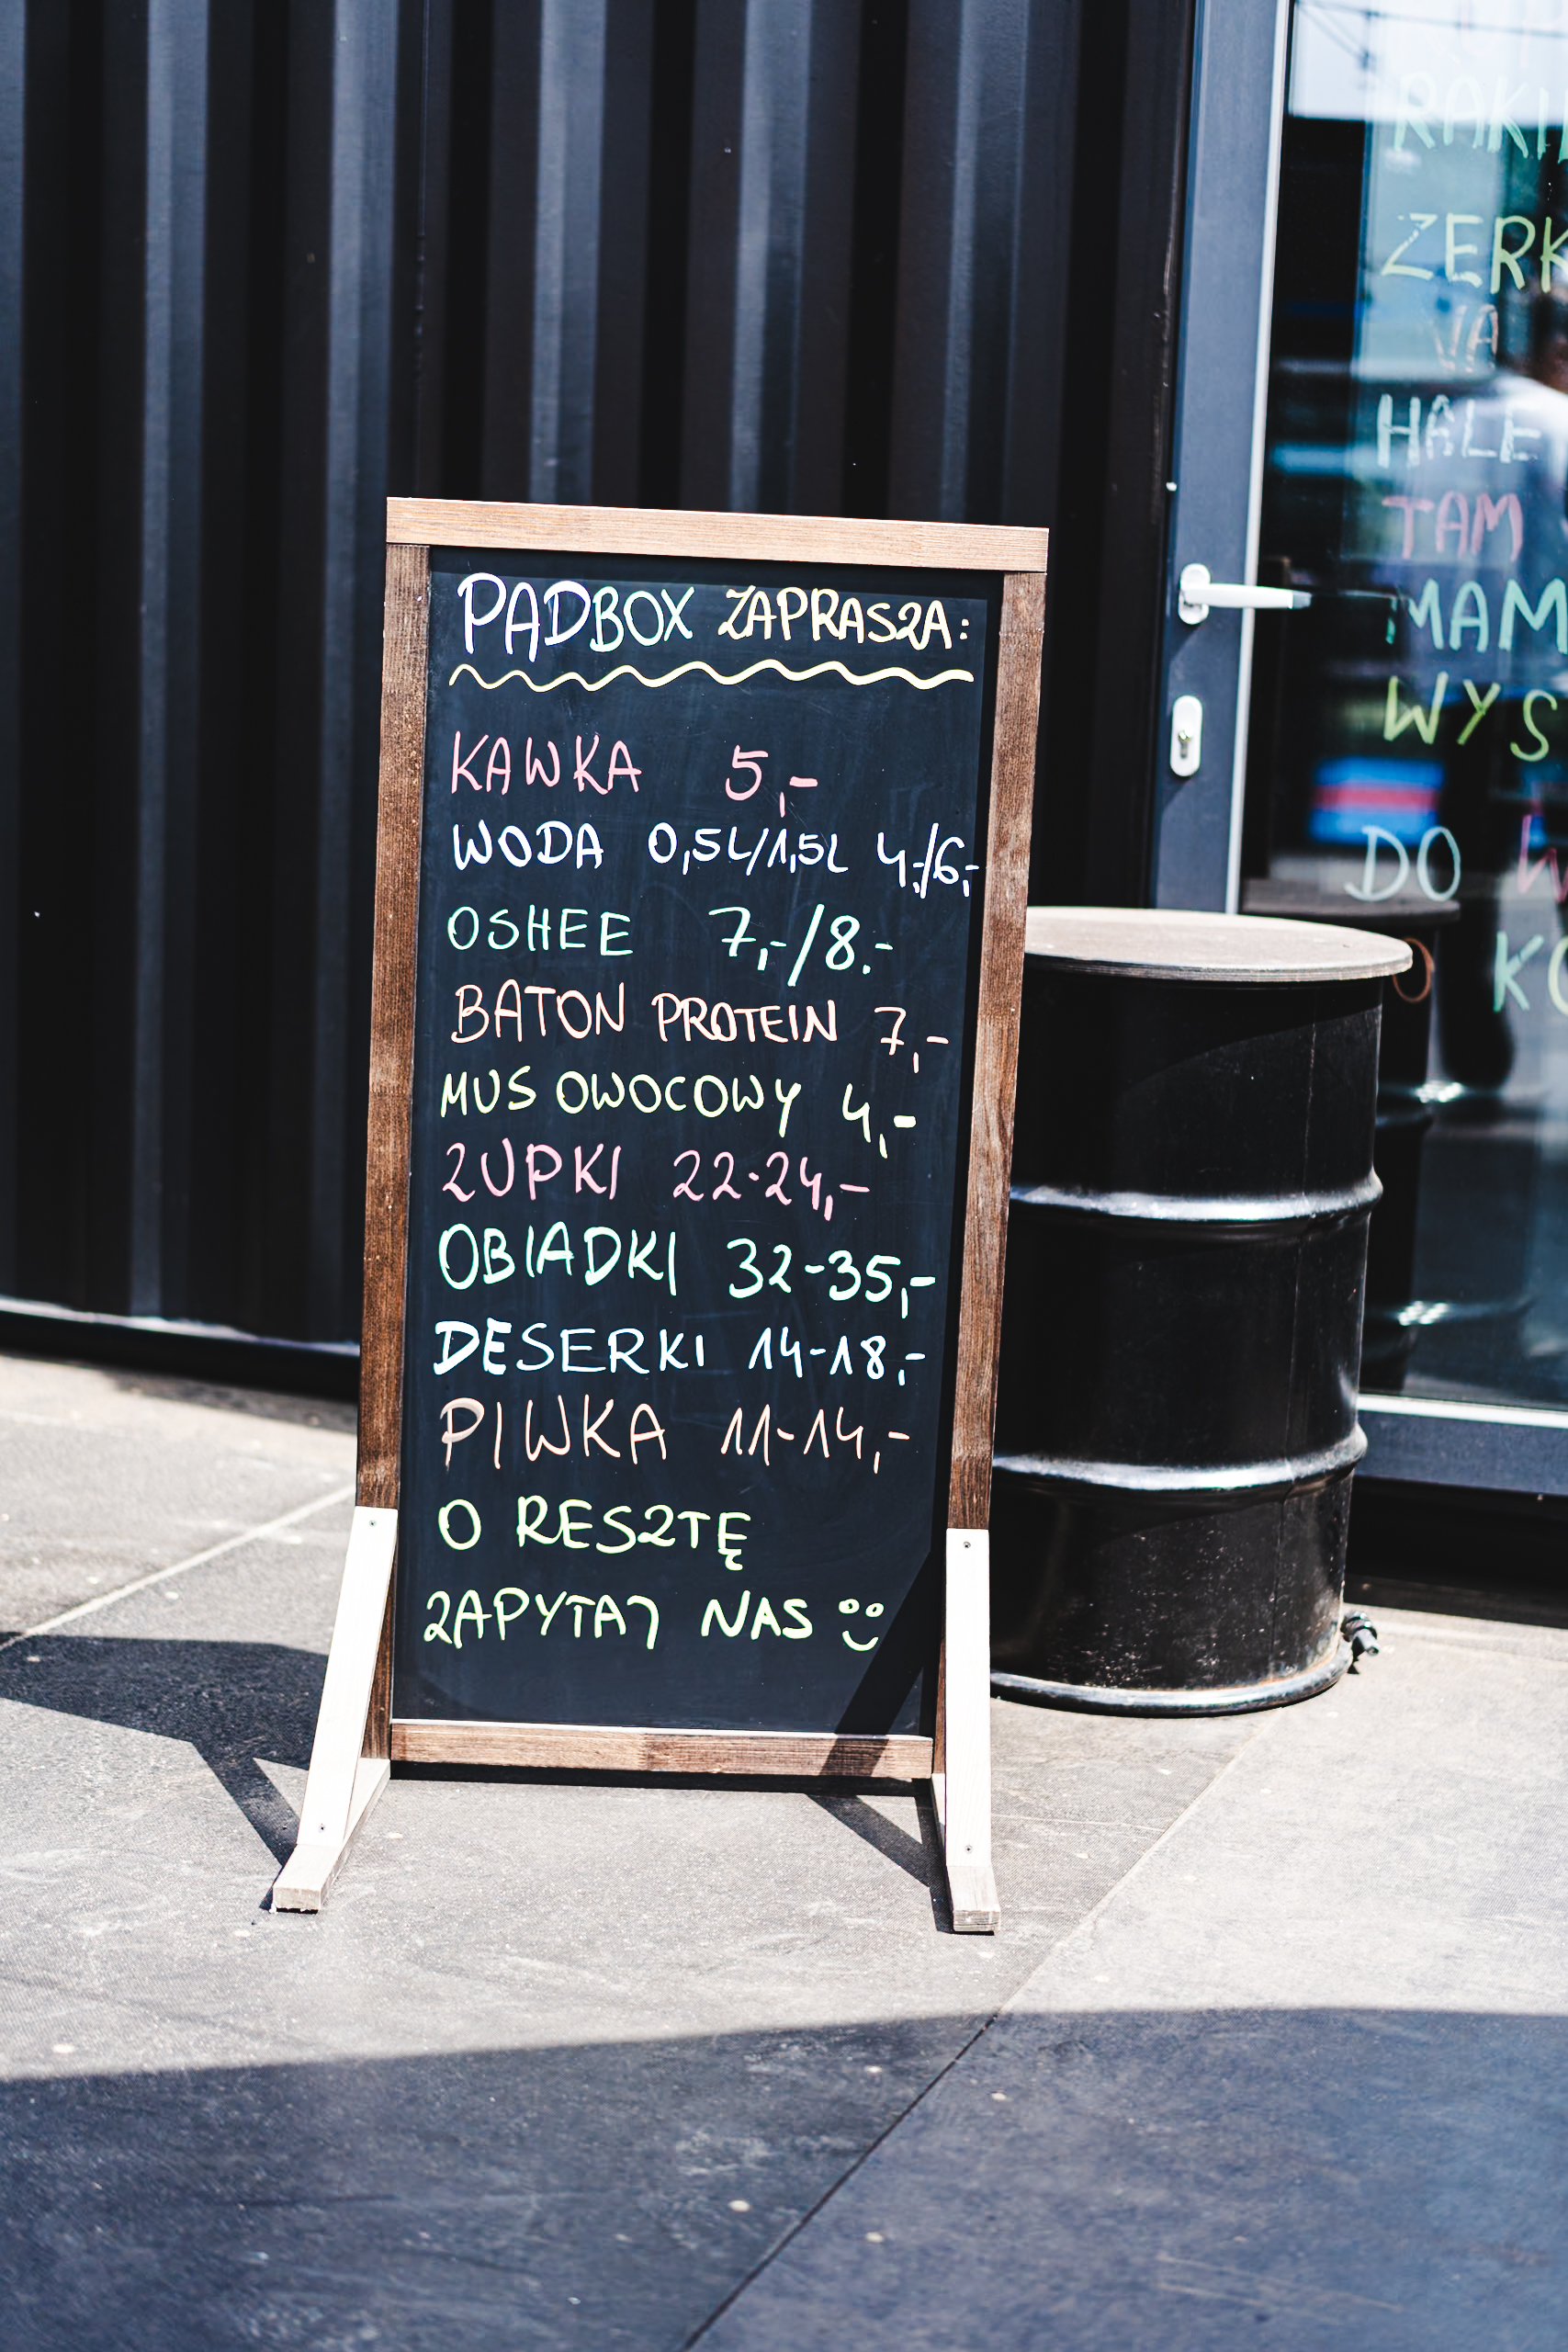 PADBOX ZAPRASZA:
KAWKA 5,-
WODA 0,5L/1,5L 4,-/6,-
OSHEE 7,-/8.-
BATON PROTEIN 7,-
MUS OWOCOWY 4,-
ZUPKI 22-24,-
OBIADKI 32-35,-
DESERKI 14-18,-
PIWKA 11-14,-
O RESZTĘ
ZAPYTAJ NAS
ZERK
HALE
TAM
MAM
WYS
DO W